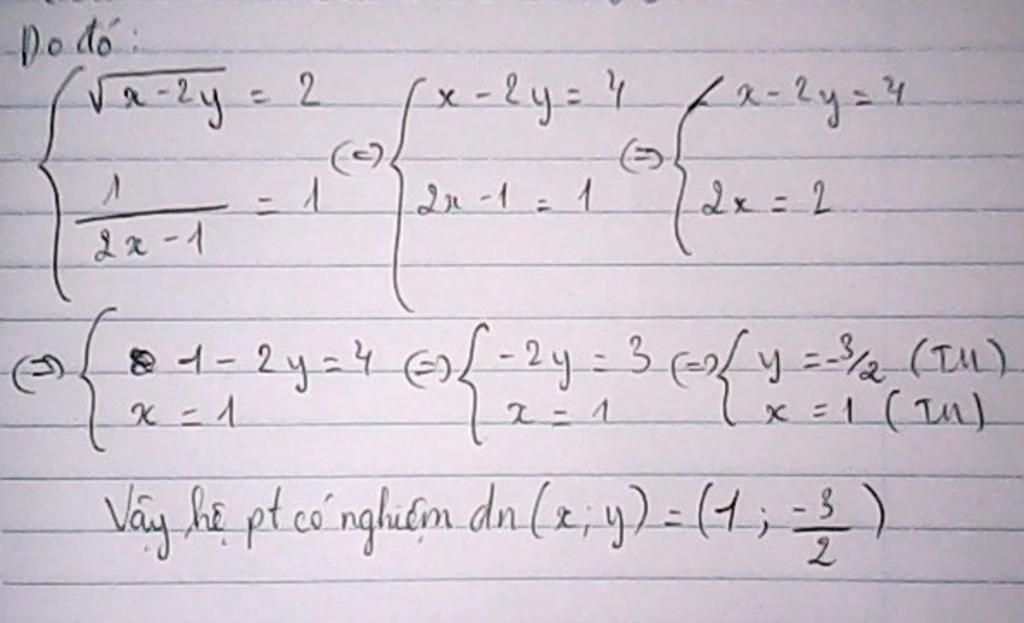 Do đó:
{ √(x - 2y) = 2 ; 1/(2x - 1) = 1 (=) { x - 2y = 4 ; 2x - 1 = 1 (=) { x - 2y = 4 ; 2x = 2
(=) { 1 - 2y = 4 ; x = 1 (=) { -2y = 3 ; x = 1 (=) { y = -3/2 (TM) ; x = 1 (TM)
Vậy hệ pt có nghiệm dn (x; y) = (1; -3/2)